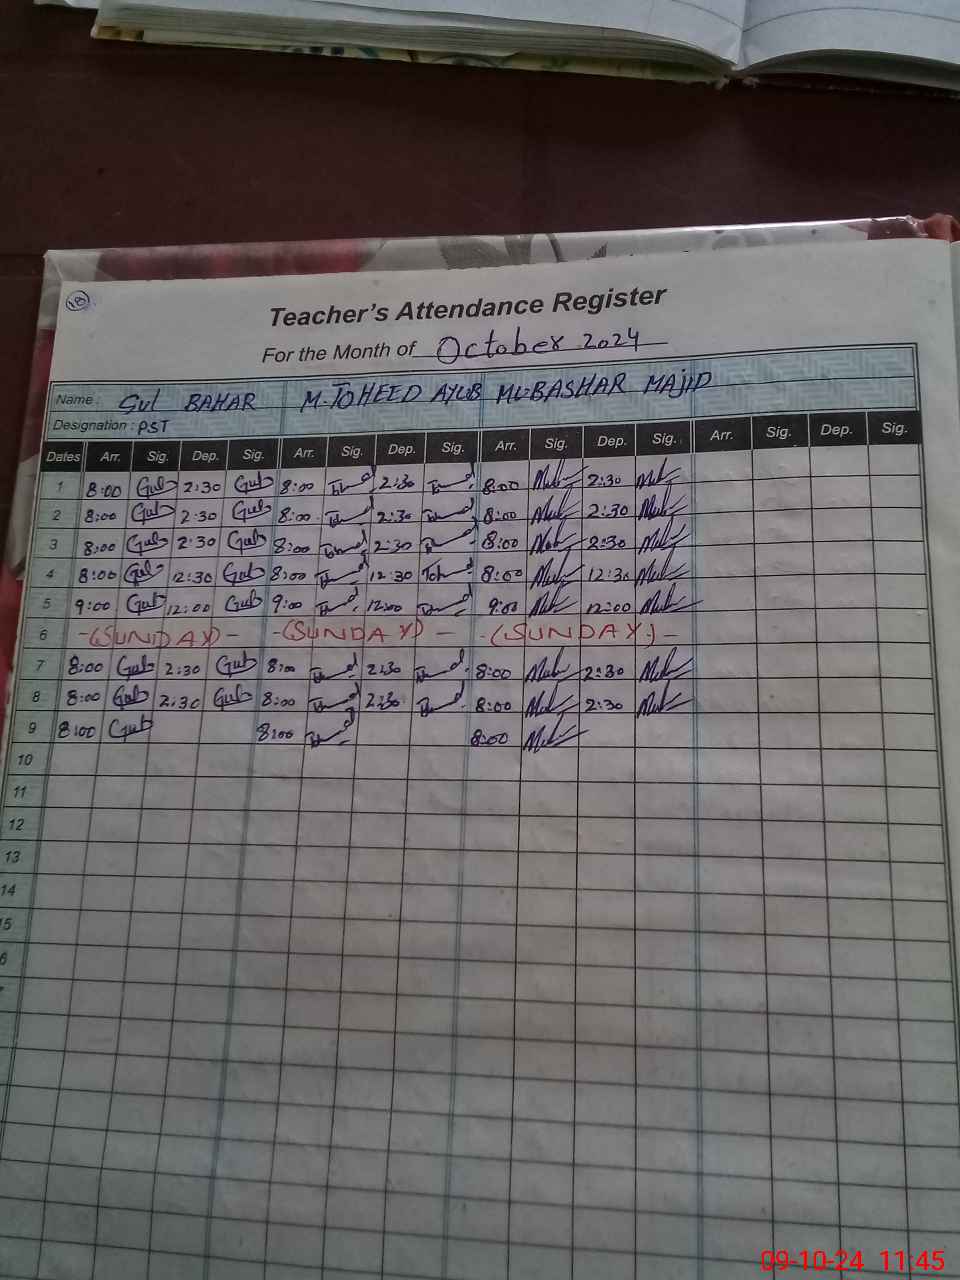 18
Teacher's Attendance Register
For the Month of October 2024
Name: Gul BAHAR M. TOHEED AYUB MUBASHAR MAJID
Designation: PST
Dates Arr. Sig. Dep. Sig. Arr. Sig. Dep. Sig. Arr. Sig. Dep. Sig. Arr. Sig. Dep. Sig.
1 8:00 Gul 2:30 Gul 8:00 2:30 8:00 2:30
2 8:00 Gul 2:30 Gul 8:00 2:30 8:00 2:30
3 8:00 Gul 2:30 Gul 8:00 2:30 8:00 2:30
4 8:00 Gul 12:30 Gul 8:00 12:30 8:00 12:30
5 9:00 Gul 12:00 Gul 9:00 12:00 9:00 12:00
6 -(SUNDAY)- -(SUNDAY)- -(SUNDAY)-
7 8:00 Gul 2:30 Gul 8:00 2:30 8:00 2:30
8 8:00 Gul 2:30 Gul 8:00 2:30 8:00 2:30
9 8:00 Gul 8:00 8:00
10
11
12
13
14
15
6
09-10-24 11:45